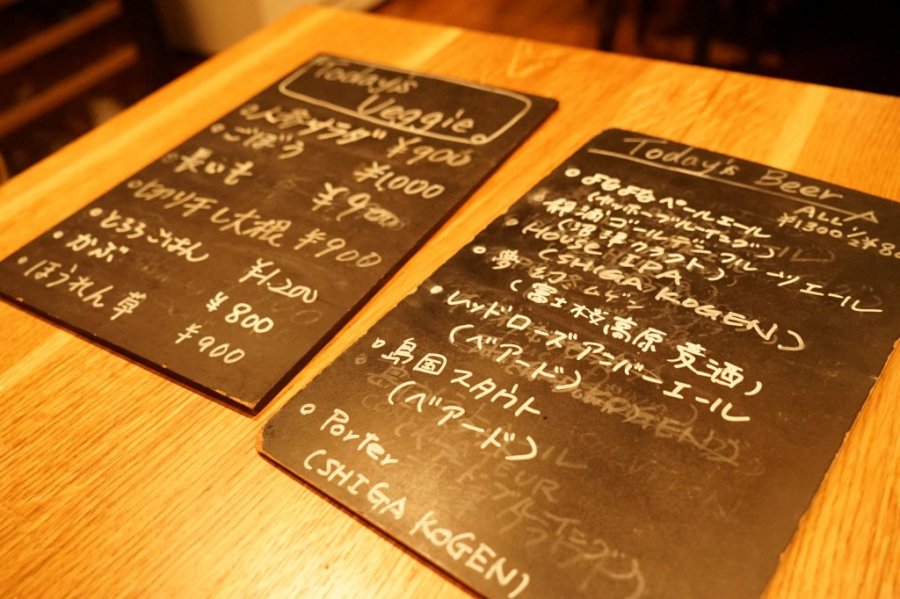 Today's
Veggie
人参サラダ ¥900
ごぼう ¥1000
長いも ¥900
干し大根 ¥900
とろろごはん ¥1,200
かぶ ¥800
ほうれん草 ¥900
Today's Beer
ALL A
¥1300 1/2 ¥80
ペールエール
ゴールデンフルーツエール
House IPA
(SHIGA KOGEN)
夢
(富士桜高原麦酒)
レッドローズアンバーエール
(ベアード)
島国スタウト
(ベアード)
Porter
(SHIGA KOGEN)